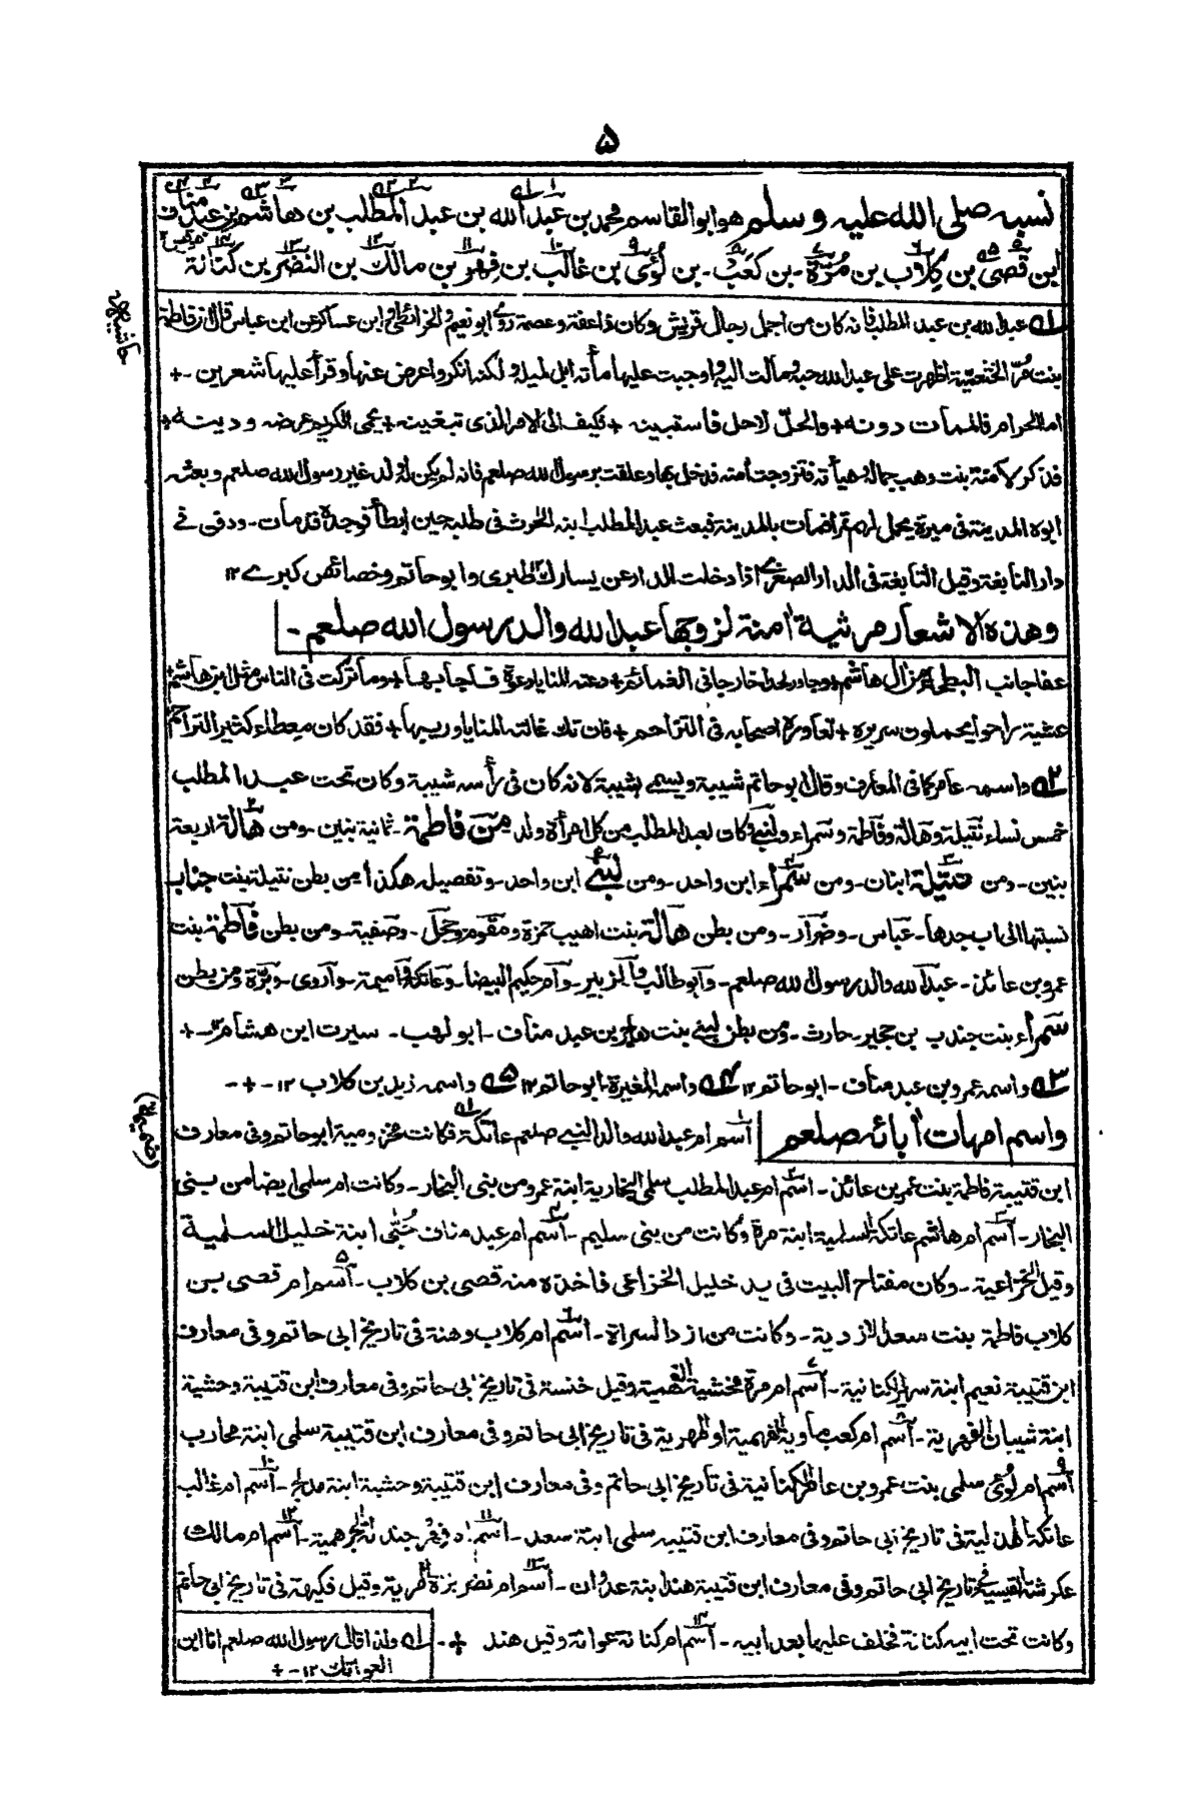 ۵
نسبه صلى الله عليه وسلم هو ابو القاسم محمد بن عبد الله بن عبد المطلب بن هاشم بن عبد مناف
ابن قصى بن كلاب بن مُرّة - بن كعب - بن لُؤى بن غالب بن فهر بن مالك بن النضر بن كنانة
حاشيه
عبد الله بن عبد المطلب فانه كان من اجمل رجال قريش وكان ذا عفة وعصمة روى ابو نعيم والخرائطى وابن عساكر عن ابن عباس قال ان فاطمة
بنت مرّ الخثعميّة اظهرت على عبد الله حبه ومالت اليه واوجبت عليها مأته ابل لميله ولكنه انكر واعرض عنها وقرأ عليها شعرين - +
اما الحرام فالممات دونه + والحلّ لاحل فاستبينه + فكيف الى الامر الذى تبغينه + يحمى الكريم عرضه ودينه +
فذكر لآمنة بنت وهب جماله وهيأته فتزوجت أمنه فدخل بها وعلقت برسول الله صلعم فانه لم يكن له ولد غير رسول الله صلعم وبعثه
ابوه المدينة فى ميرة يحمل لهم تمرا فمات بالمدينة فبعث عبد المطلب ابنه الحرث فى طلبه حين ابطأ فوجده قد مات - ودفن فى
دار النابغة وقيل التابعة فى الدار الصغرى اذا دخلت الدار عن يسارك ١٢ طبرى وابو حاتم وخصائص كبرى ١٢
وهذه الاشعار مرثية أمنة لزوجها عبد الله والد رسول الله صلعم -
عفا جانب البطحاء من ال هاشم + وجاور لحدا خارجا فى الغمائم + دعته المنايا دعوة فاجابها + وما تركت فى الناس مثل ابن هاشم +
عشية راحوا يحملون سريره + تعاوره اصحابه فى التزاحم + فان تك غالته المنايا وريبها + فقد كان معطاء كثير التراحم
٢ واسمه عامر كما فى المعارف وقال ابو حاتم شيبة ويسمى بشيبة لانه كان فى رأسه شيبة وكان تحت عبد المطلب
خمس نساء نتيلة وهالة وفاطمة وسمراء ولبنى وكان لعبد المطلب من كل امرأة ولد من فاطمة - ثمانية بنين - ومن هالة اربعة
بنين - ومن نتيلة ابنان - ومن سمراء ابن واحد - ومن لبنى ابن واحد - وتفصيله هكذا أمن بطن نتيلة بنت جناب
نسبتها الى اب جدها - عباس - وضرار - ومن بطن هالة بنت اهيب حمزة ومقوم وحجل - وصفية - ومن بطن فاطمة بنت
عمرو بن عائذ - عبد الله والد رسول الله صلعم - وابو طالب والزبير - وام حكيم البيضأ - وعاتكة واميمة - واروى - وبرّة ومن بطن
سمراء بنت جندب بن حجير - حارث - ومن بطن لبنى بنت هاجر بن عبد مناف - ابو لهب - سيرت ابن هشام - +
٣ واسمه عمرو بن عبد مناف - ابو حاتم ١٢ ٤ واسم المغيرة ابو حاتم ١٢ ٥ واسمه زيد بن كلاب ١٢ - + -
(ضميمه)
واسم امهات أبائه صلعم اسم ام عبد الله والد النبى صلعم عاتكة فكانت مخزومية ابو حاتم وفى معارف
ابن قتيبة فاطمة بنت عمر بن عائذ - اسم ام عبد المطلب سلمى النجارية ابنة عمرو من بنى النجار - وكانت ام سلمى ايضا من بنى
النجار - اسم ام هاشم عاتكة السلمية ابنة مرة وكانت من بنى سليم - اسم ام عبد مناف حُبّى ابنة خليل السلمية
وقيل الخزاعية - وكان مفتاح البيت فى يد خليل الخزاعى فاخذه منه قصى بن كلاب - اسم ام قصى بن
كلاب فاطمة بنت سعد الازدية - وكانت من ازد السراة - اسم ام كلاب وهنة فى تاريخ ابى حاتم وفى معارف
ابن قتيبة نعيم ابنة سرير الكنانية - اسم ام مرة مخشية الفهمية وقيل خنسة فى تاريخ ابى حاتم وفى معارف ابن قتيبة وحشية
ابنة شيبان الفهرية - اسم ام كعب ماوية الفهمية او الفهرية فى تاريخ ابى حاتم وفى معارف ابن قتيبة سلمى ابنة محارب
اسم ام لؤى سلمى بنت عمرو بن عامر الكنانية فى تاريخ ابى حاتم وفى معارف ابن قتيبة وحشية ابنة مدلج - اسم ام غالب
عاتكة الهذلية فى تاريخ ابى حاتم وفى معارف ابن قتيبه سلمى ابنة سعد - اسم ام فهر جندلة الجرهمية - اسم ام مالك
عكرشة القيسية فى تاريخ ابى حاتم وفى معارف ابن قتيبة هند ابنة عدوان - اسم ام نضر بزة المرية وقيل فكيهة فى تاريخ ابى حاتم
وكانت تحت ابيه كنانة فخلف عليها بعد ابيه - اسم ام كنانة عوانة وقيل هند + -
١ ولذا قال رسول الله صلعم انا ابن
العواتك ١٢ - +